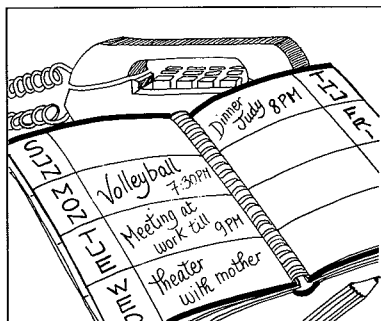 SUN
MON
Volleyball
7:30PM
TUE
Meeting at
work till 9PM
WED
Theater
with mother
Dinner
Judy 8PM
FRI